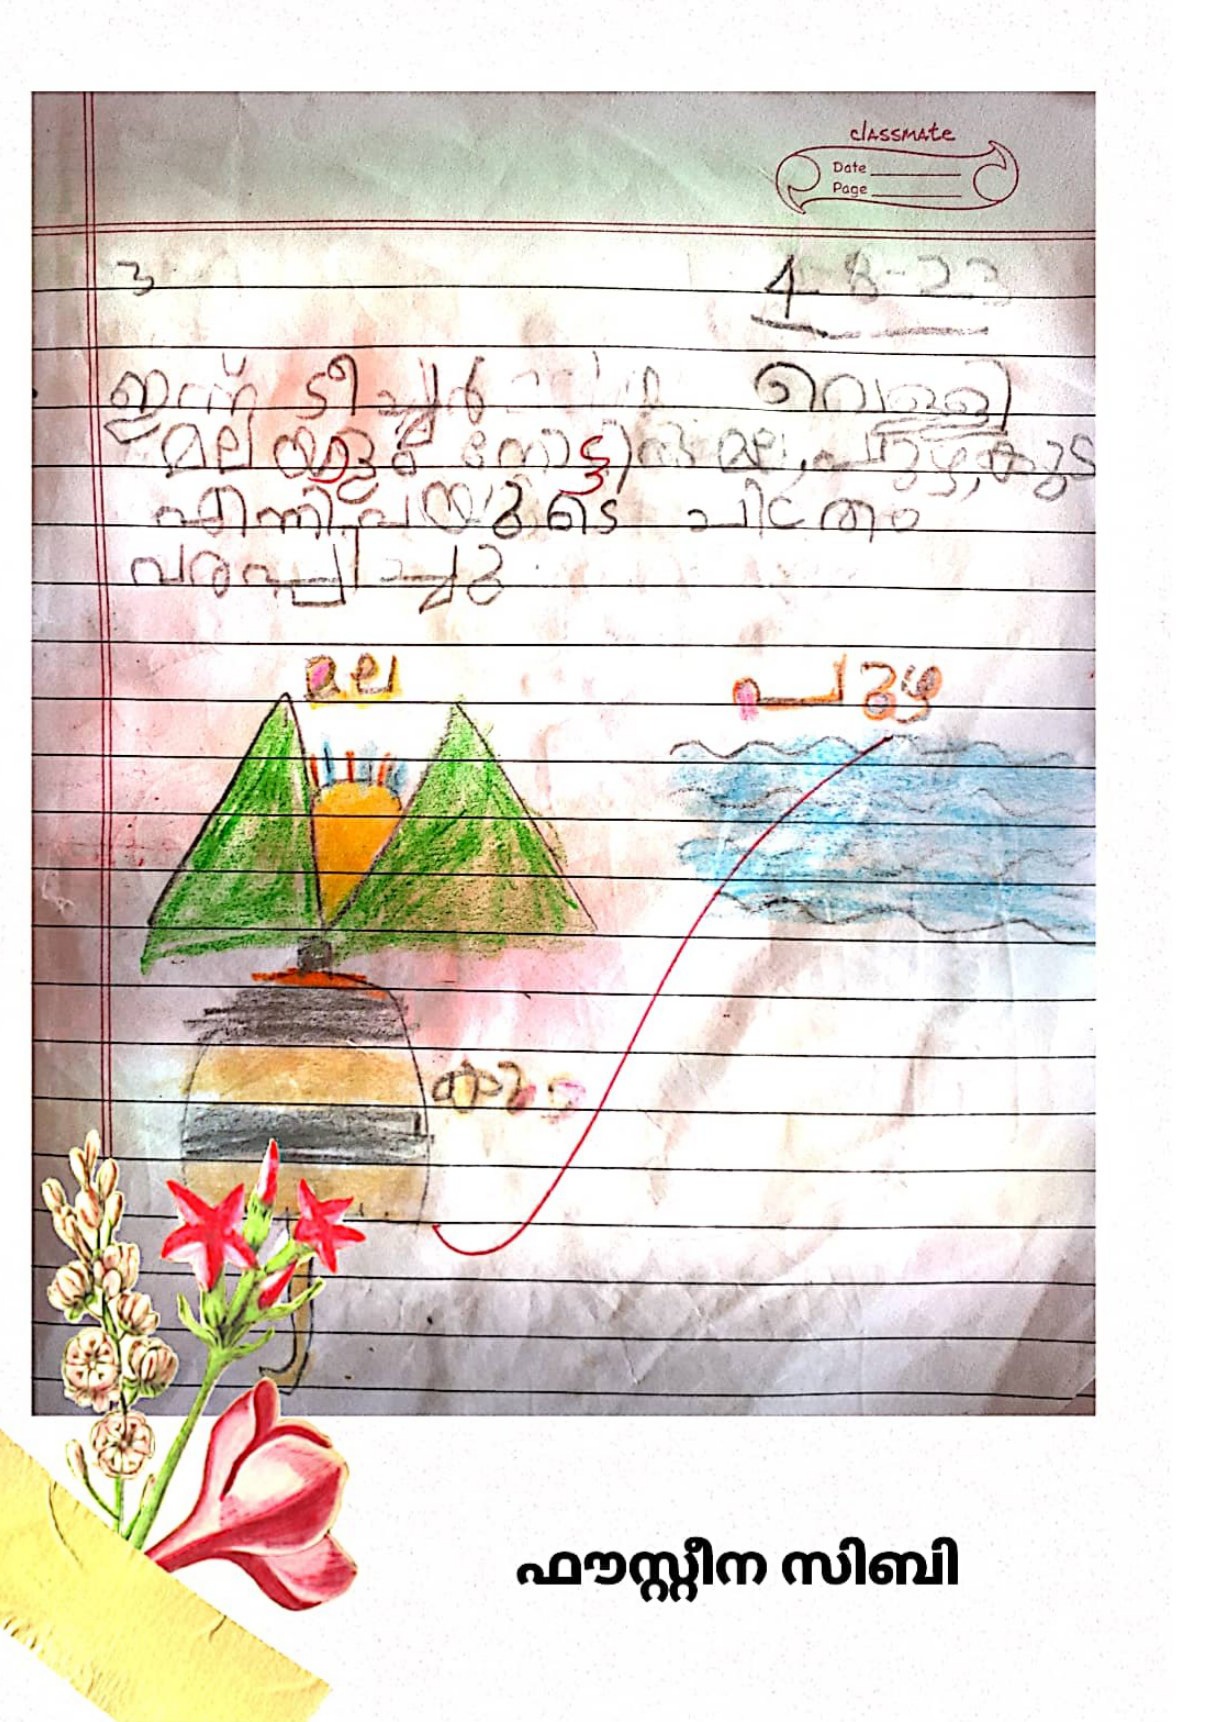 classmate
Date
Page
3
4-8-23
ഇന്ന് ടീച്ചർ വെള്ളി
മലയാളം നോട്ടിൽ മല, പുഴ, കുട
എന്നിവയുടെ ചിത്രം
വരപ്പിച്ചു
മല
പുഴ
കുട
ഫൗസ്റ്റീന സിബി